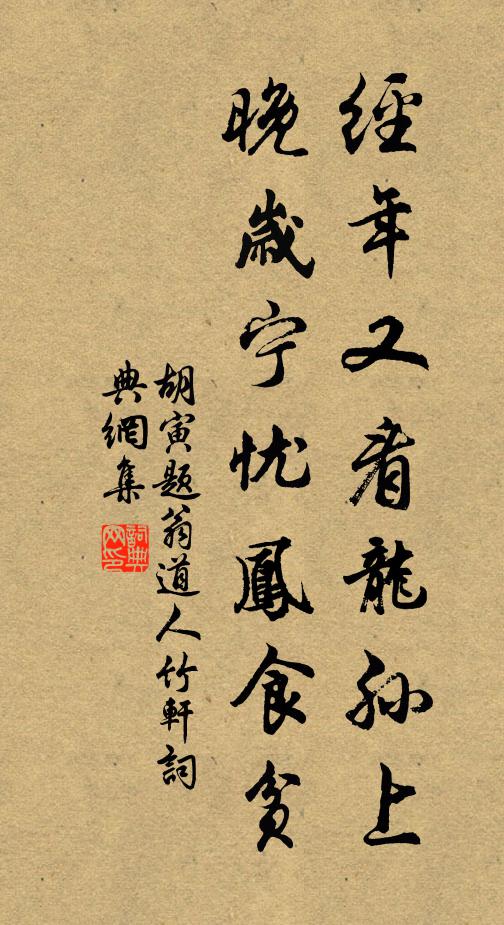 經年又看龍孫上
晚歲宁忧鳳食貧
胡寅題翁道人竹軒詞
典網集
詞典网印